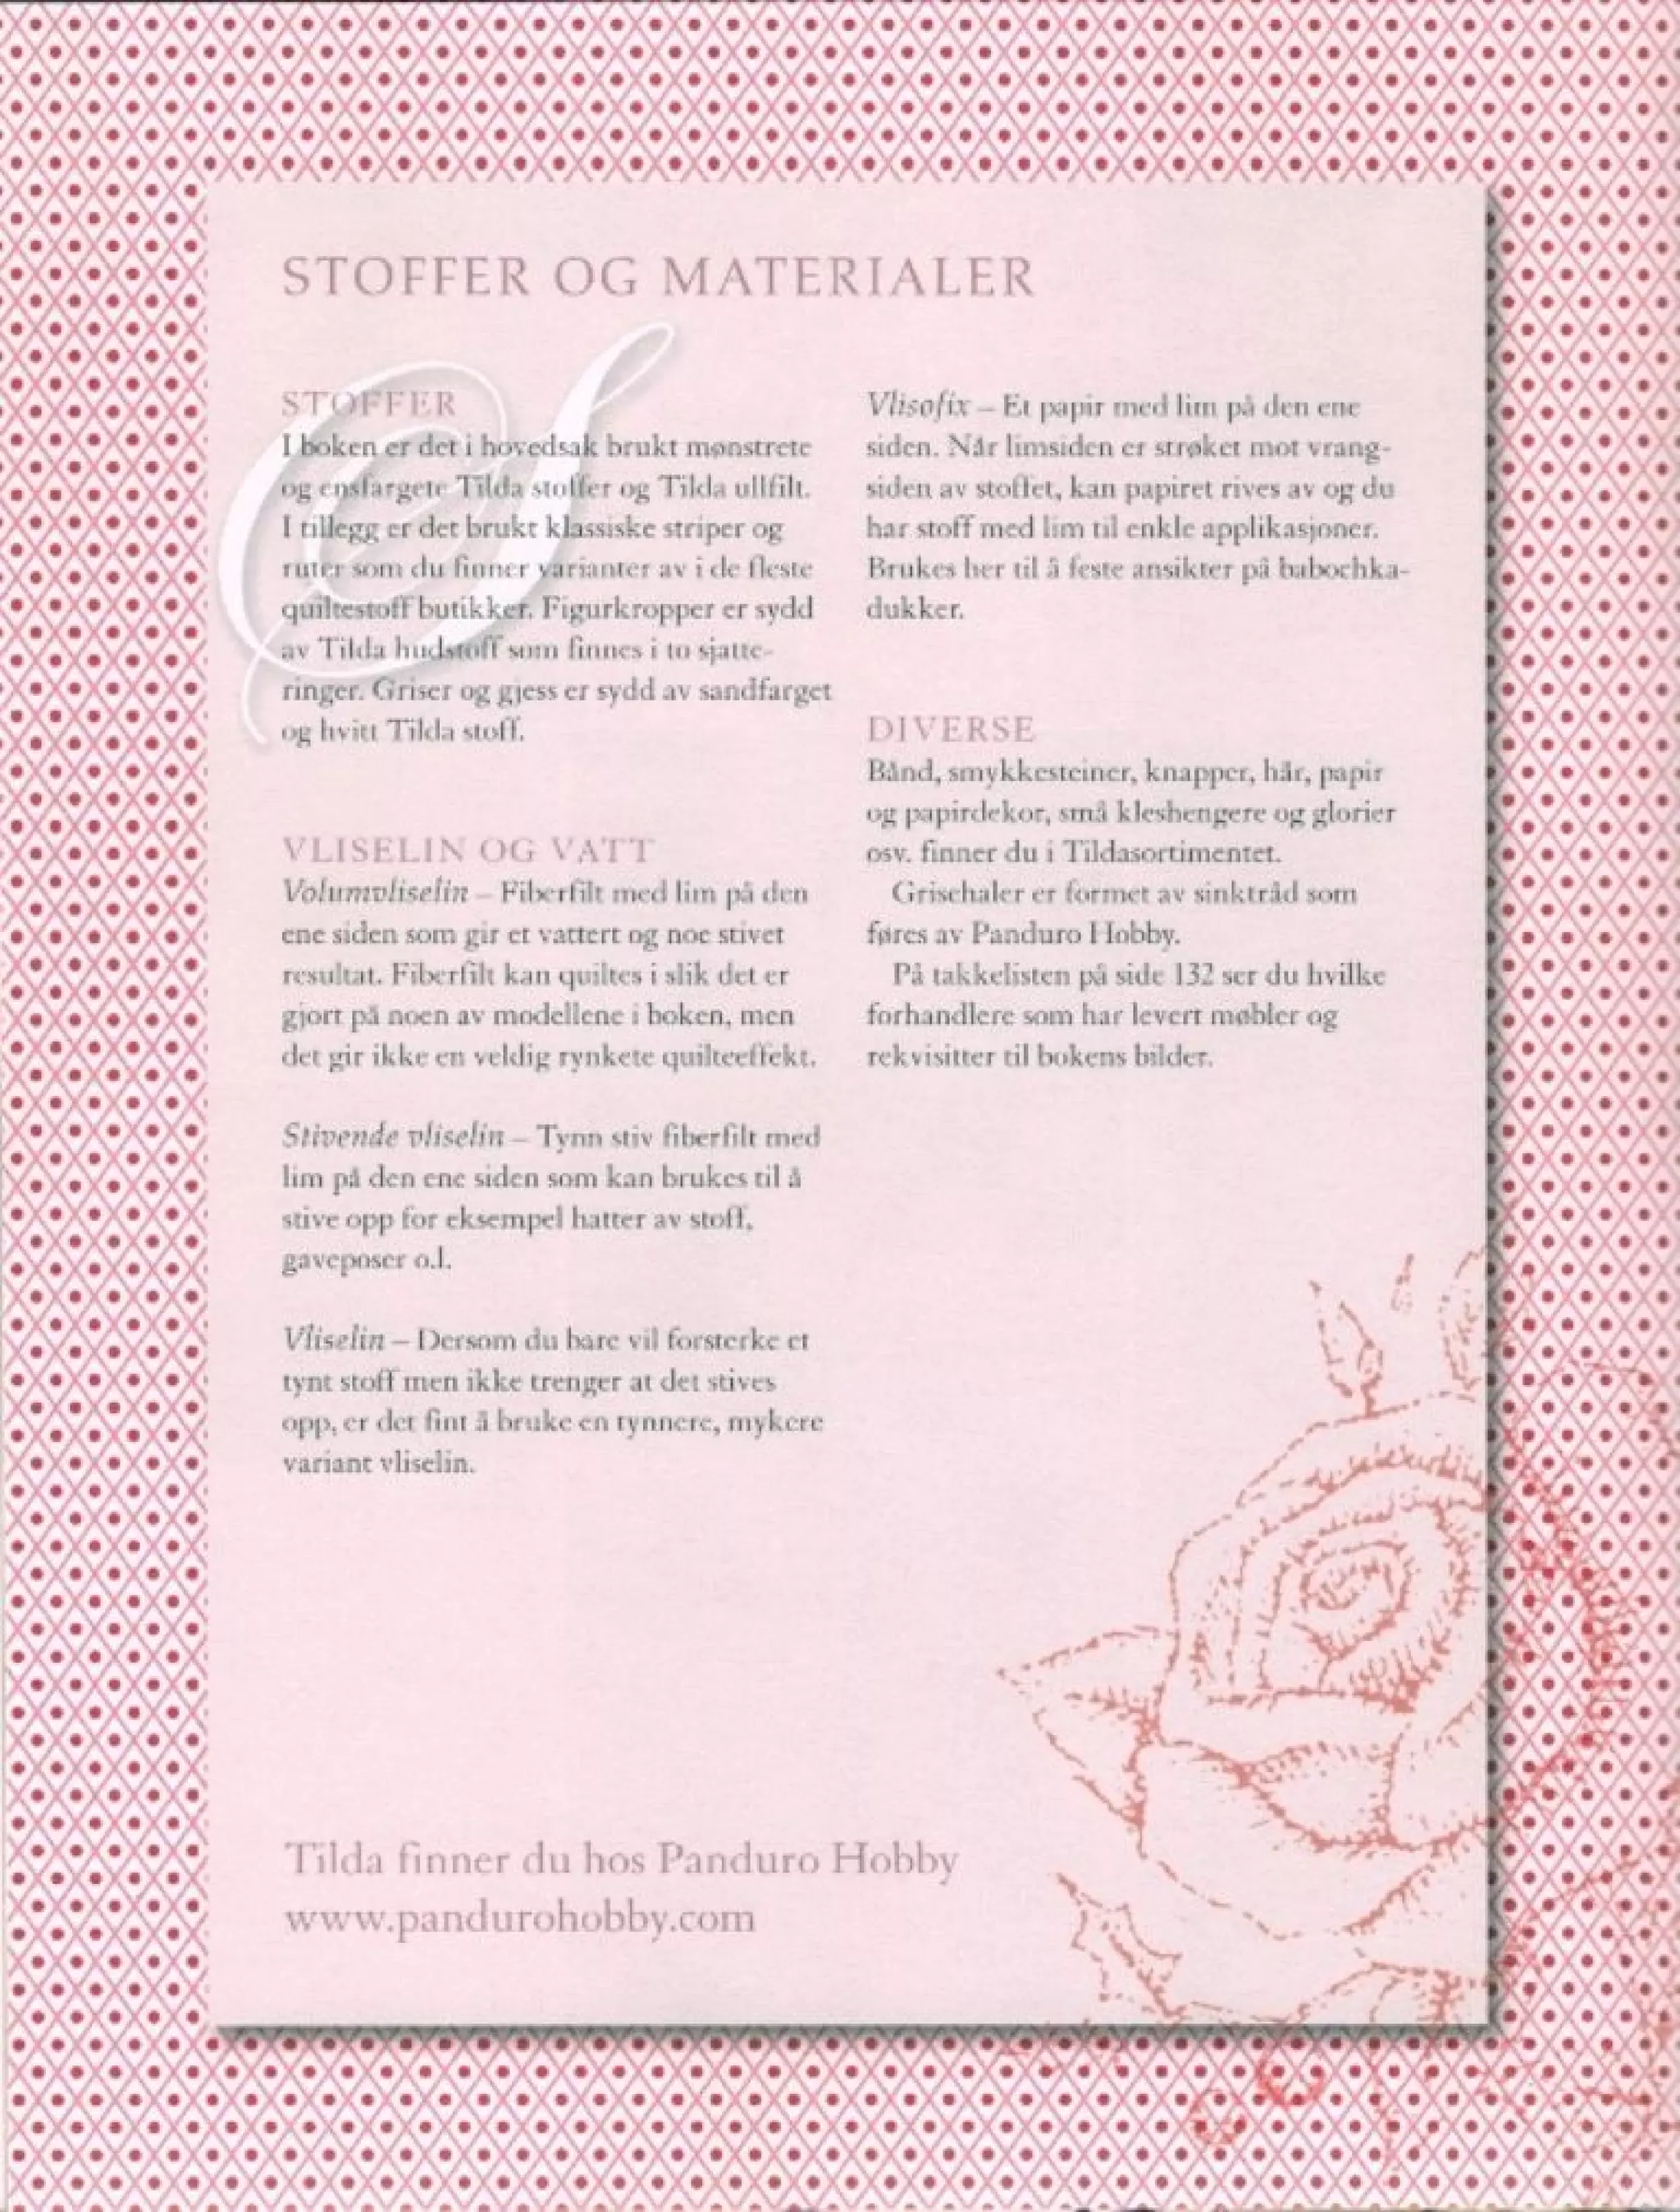 STOFFER OG MATERIALER
S
STOFFER
I boken er det i hovedsak brukt mønstrete
og ensfargete Tilda stoffer og Tilda ullfilt.
I tillegg er det brukt klassiske striper og
ruter som du finner varianter av i de fleste
quiltestoff butikker. Figurkropper er sydd
av Tilda hudstoff som finnes i to sjatte-
ringer. Griser og gjess er sydd av sandfarget
og hvitt Tilda stoff.
VLISELIN OG VATT
Volumvliselin – Fiberfilt med lim på den
ene siden som gir et vattert og noe stivet
resultat. Fiberfilt kan quiltes i slik det er
gjort på noen av modellene i boken, men
det gir ikke en veldig rynkete quilteeffekt.
Stivende vliselin – Tynn stiv fiberfilt med
lim på den ene siden som kan brukes til å
stive opp for eksempel hatter av stoff,
gaveposer o.l.
Vliselin – Dersom du bare vil forsterke et
tynt stoff men ikke trenger at det stives
opp, er det fint å bruke en tynnere, mykere
variant vliselin.
Vlisofix – Et papir med lim på den ene
siden. Når limsiden er strøket mot vrang-
siden av stoffet, kan papiret rives av og du
har stoff med lim til enkle applikasjoner.
Brukes her til å feste ansikter på babochka-
dukker.
DIVERSE
Bånd, smykkesteiner, knapper, hår, papir
og papirdekor, små kleshengere og glorier
osv. finner du i Tildasortimentet.
Grisehaler er formet av sinktråd som
føres av Panduro Hobby.
På takkelisten på side 132 ser du hvilke
forhandlere som har levert møbler og
rekvisitter til bokens bilder.
Tilda finner du hos Panduro Hobby
www.pandurohobby.com